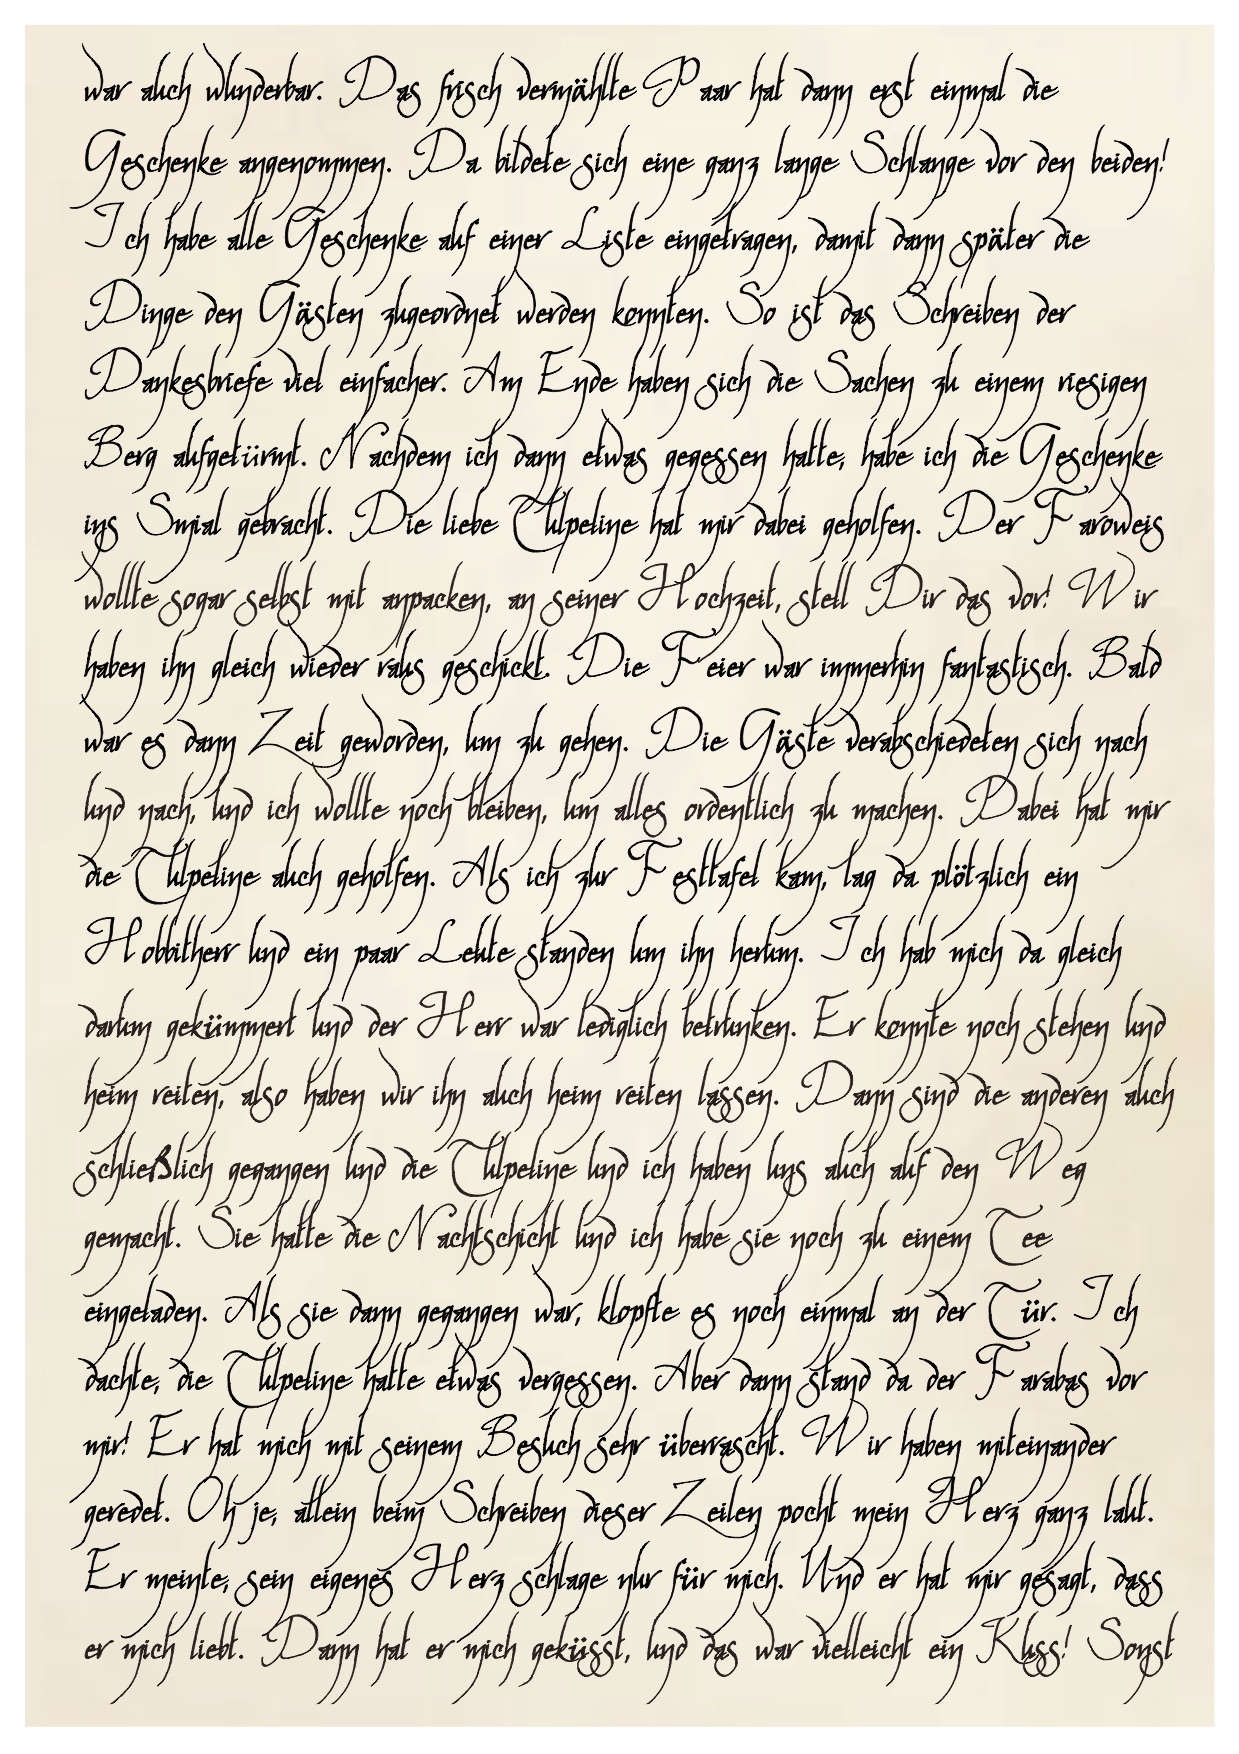 war auch wunderbar. Das frisch vermählte Paar hat dann erst einmal die
Geschenke angenommen. Da bildete sich eine ganz lange Schlange vor den beiden!
Ich habe alle Geschenke auf einer Liste eingetragen, damit dann später die
Dinge den Gästen zugeordnet werden konnten. So ist das Schreiben der
Dankesbriefe viel einfacher. Am Ende haben sich die Sachen zu einem riesigen
Berg aufgetürmt. Nachdem ich dann etwas gegessen hatte, habe ich die Geschenke
ins Smial gebracht. Die liebe Tulpeline hat mir dabei geholfen. Der Faroweis
wollte sogar selbst mit anpacken, an seiner Hochzeit, stell Dir das vor! Wir
haben ihn gleich wieder raus geschickt. Die Feier war immerhin fantastisch. Bald
war es dann Zeit geworden, um zu gehen. Die Gäste verabschiedeten sich nach
und nach, und ich wollte noch bleiben, um alles ordentlich zu machen. Dabei hat mir
die Tulpeline auch geholfen. Als ich zur Festtafel kam, lag da plötzlich ein
Hobbitherr und ein paar Leute standen um ihn herum. Ich hab mich da gleich
darum gekümmert und der Herr war lediglich betrunken. Er konnte noch stehen und
heim reiten, also haben wir ihn auch heim reiten lassen. Dann sind die anderen auch
schließlich gegangen und die Tulpeline und ich haben uns auch auf den Weg
gemacht. Sie hatte die Nachtschicht und ich habe sie noch zu einem Tee
eingeladen. Als sie dann gegangen war, klopfte es noch einmal an der Tür. Ich
dachte, die Tulpeline hatte etwas vergessen. Aber dann stand da der Farabas vor
mir! Er hat mich mit seinem Besuch sehr überrascht. Wir haben miteinander
geredet. Oh je, allein beim Schreiben dieser Zeilen pocht mein Herz ganz laut.
Er meinte, sein eigenes Herz schlage nur für mich. Und er hat mir gesagt, dass
er mich liebt. Dann hat er mich geküsst, und das war vielleicht ein Kuss! Sonst